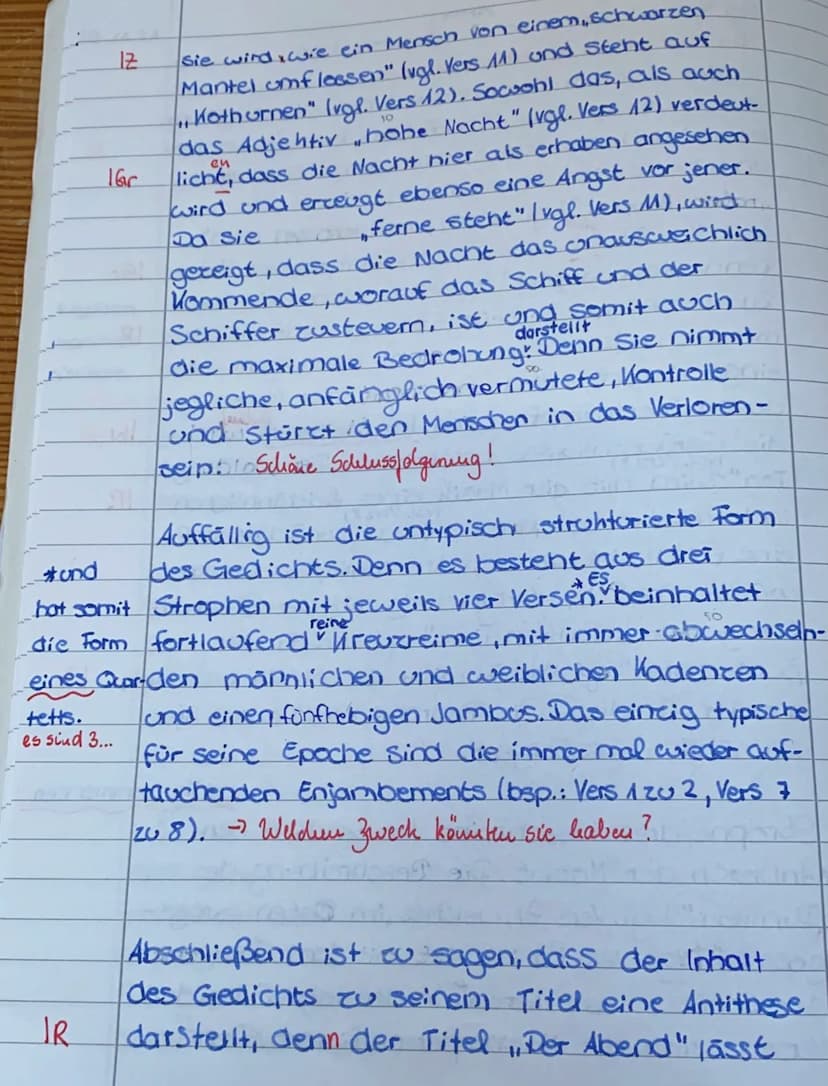 1Z sie wird, wie ein Mensch von einem „schwarzen
Mantel umflossen" (vgl. Vers 11) und steht auf
„Kothurnen" (vgl. Vers 12). Sowohl das, als auch
das Adjektiv „hohe Nacht" (vgl. Vers 12) verdeut-
en
1Gr licht, dass die Nacht hier als erhaben angesehen
wird und erzeugt ebenso eine Angst vor jener.
Da sie „ferne steht" (vgl. Vers 11), wird
gezeigt, dass die Nacht das unausweichlich
Kommende, worauf das Schiff und der
Schiffer zusteuern, ist und somit auch
darstellt
die maximale Bedrohung. Denn sie nimmt
jegliche, anfänglich vermutete, Kontrolle
und stürzt den Menschen in das Verloren-
sein. Schöne Schlussfolgerung!
Auffällig ist die untypisch strukturierte Form
*und des Gedichts. Denn es besteht aus drei
* ES
hat somit Strophen mit jeweils vier Versen. beinhaltet
reine
die Form fortlaufend Kreuzreime, mit immer abwechseln-
eines Quar- den männlichen und weiblichen Kadenzen
tetts. und einen fünfhebigen Jambus. Das einzig typische
es sind 3... für seine Epoche sind die immer mal wieder auf-
tauchenden Enjambements (bsp.: Vers 1 zu 2, Vers 7
zu 8). → Welchen Zweck könnten sie haben?
Abschließend ist zu sagen, dass der Inhalt
des Gedichts zu seinem Titel eine Antithese
1R darstellt, denn der Titel „Der Abend" lässt